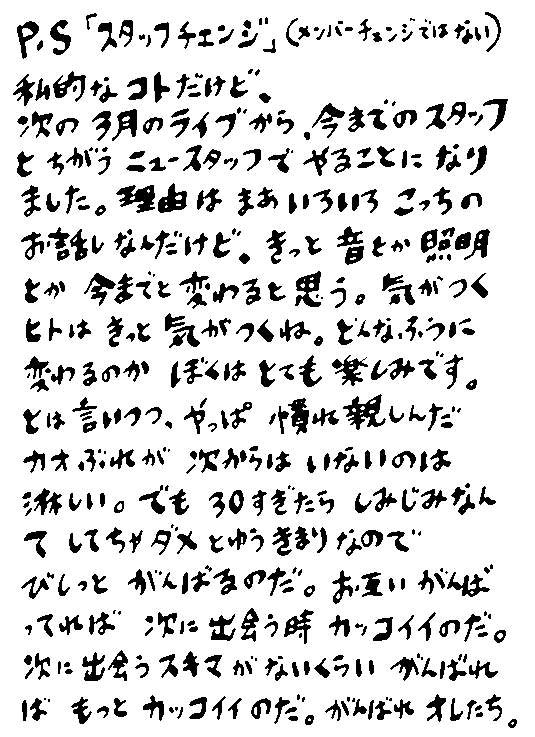 P.S「スタッフチェンジ」(メンバーチェンジではない)
私的なコトだけど、
次の3月のライブから、今までのスタッフ
とちがうニュースタッフでやることになり
ました。理由はまあいろいろこっちの
お話しなんだけど。きっと音とか照明
とか今までと変わると思う。気がつく
ヒトはきっと気がつくね。どんなふうに
変わるのかぼくはとても楽しみです。
とは言いつつ、やっぱ慣れ親しんだ
カオぶれが次からはいないのは
淋しい。でも30すぎたらしみじみなん
てしてちゃダメとゆうきまりなので
びしっとがんばるのだ。お互いがんば
ってれば次に出会う時カッコイイのだ。
次に出会うスキマがないくらいがんばれ
ばもっとカッコイイのだ。がんばれオレたち。